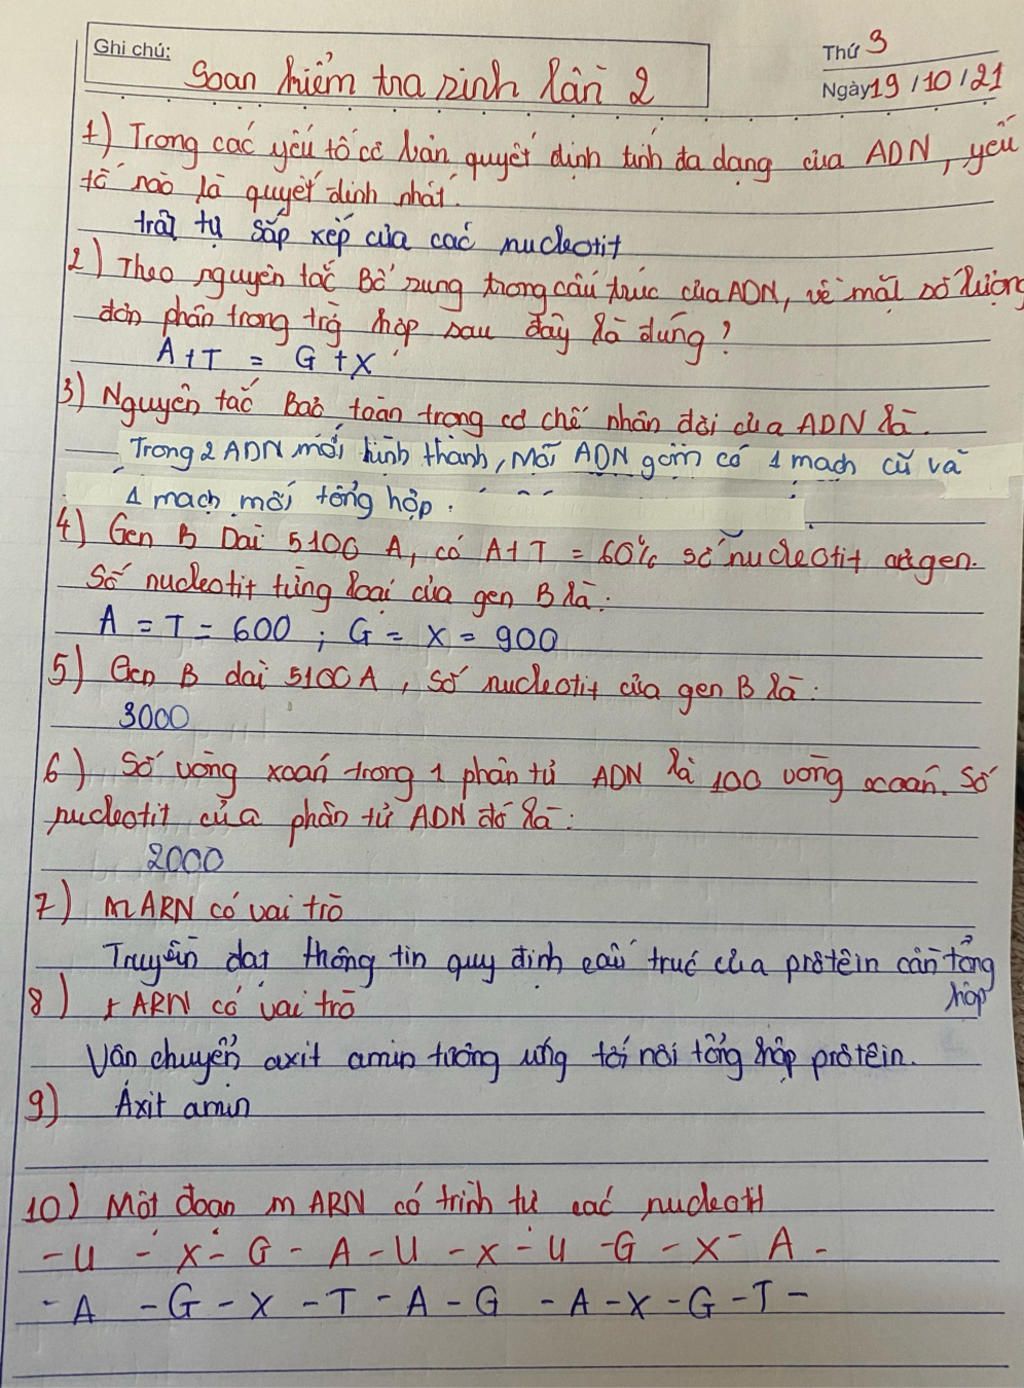 Ghi chú:
Thứ 3
Soạn kiểm tra sinh lần 2
Ngày 19/10/21
1) Trong các yếu tố cơ bản quyết định tính đa dạng của ADN, yếu
tố nào là quyết định nhất.
trật tự sắp xếp của các nucleotit
2) Theo nguyên tắc Bổ sung trong cấu trúc của ADN, về mặt số lượng
đơn phân trong trg hợp sau đây là đúng?
A+T = G+X
3) Nguyên tắc Bảo toàn trong cơ chế nhân đôi của ADN là.
Trong 2 ADN mới hình thành, Mỗi ADN gồm có 1 mạch cũ và
1 mạch mới tổng hợp.
4) Gen B Dài 5100 A, có A+T = 60% số nucleotit của gen.
Số nucleotit từng loại của gen B là:
A = T = 600 ; G = X = 900
5) Gen B dài 5100A, số nucleotit của gen B là:
3000
6) Số vòng xoắn trong 1 phân tử ADN là 100 vòng xoắn. Số
nucleotit của phân tử ADN đó là:
2000
7) mARN có vai trò
Truyền đạt thông tin quy định cấu trúc của prôtêin cần tổng
hợp
8) tARN có vai trò
Vận chuyển axit amin tương ứng tới nơi tổng hợp prôtêin.
9) Axit amin
10) Một đoạn mARN có trình tự các nucleotit
- U - X - G - A - U - X - U - G - X - A -
- A - G - X - T - A - G - A - X - G - T -